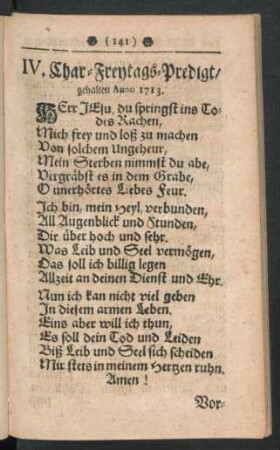 (141)
IV. Char-Freytags-Predigt/
gehalten Anno 1713.
HErr JEsu, du springst ins To-
des Rachen,
Mich frey und loß zu machen
Von solchem Ungeheur,
Mein Sterben nimmst du abe,
Vergräbst es in dem Grabe,
O unerhörtes Liebes Feur.
Ich bin, mein Heyl, verbunden,
All Augenblick und Stunden,
Dir über hoch und sehr.
Was Leib und Seel vermögen,
Das soll ich billig legen
Allzeit an deinen Dienst und Ehr.
Nun ich kan nicht viel geben
In diesem armen Leben.
Eins aber will ich thun,
Es soll dein Tod und Leiden
Biß Leib und Seel sich scheiden
Mir stets in meinem Hertzen ruhn.
Amen!
Vor-